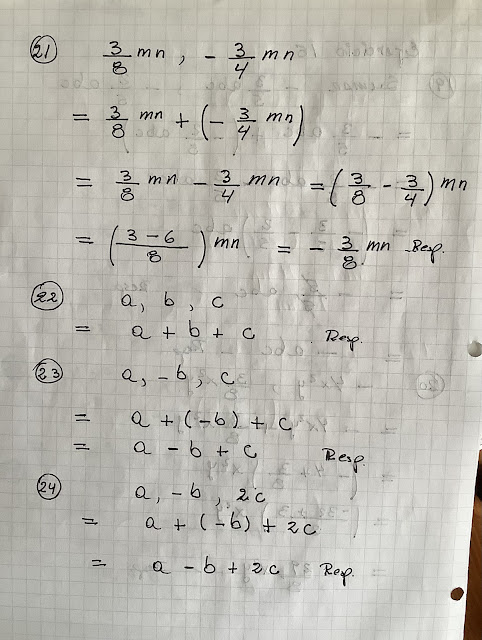 21 3/8 mn, - 3/4 mn
= 3/8 mn + (- 3/4 mn)
= 3/8 mn - 3/4 mn = (3/8 - 3/4) mn
= (3-6/8) mn = - 3/8 mn Resp.
22 a, b, c
= a + b + c Resp.
23 a, -b, c
= a + (-b) + c
= a - b + c Resp.
24 a, -b, 2c
= a + (-b) + 2c
= a - b + 2c Resp.